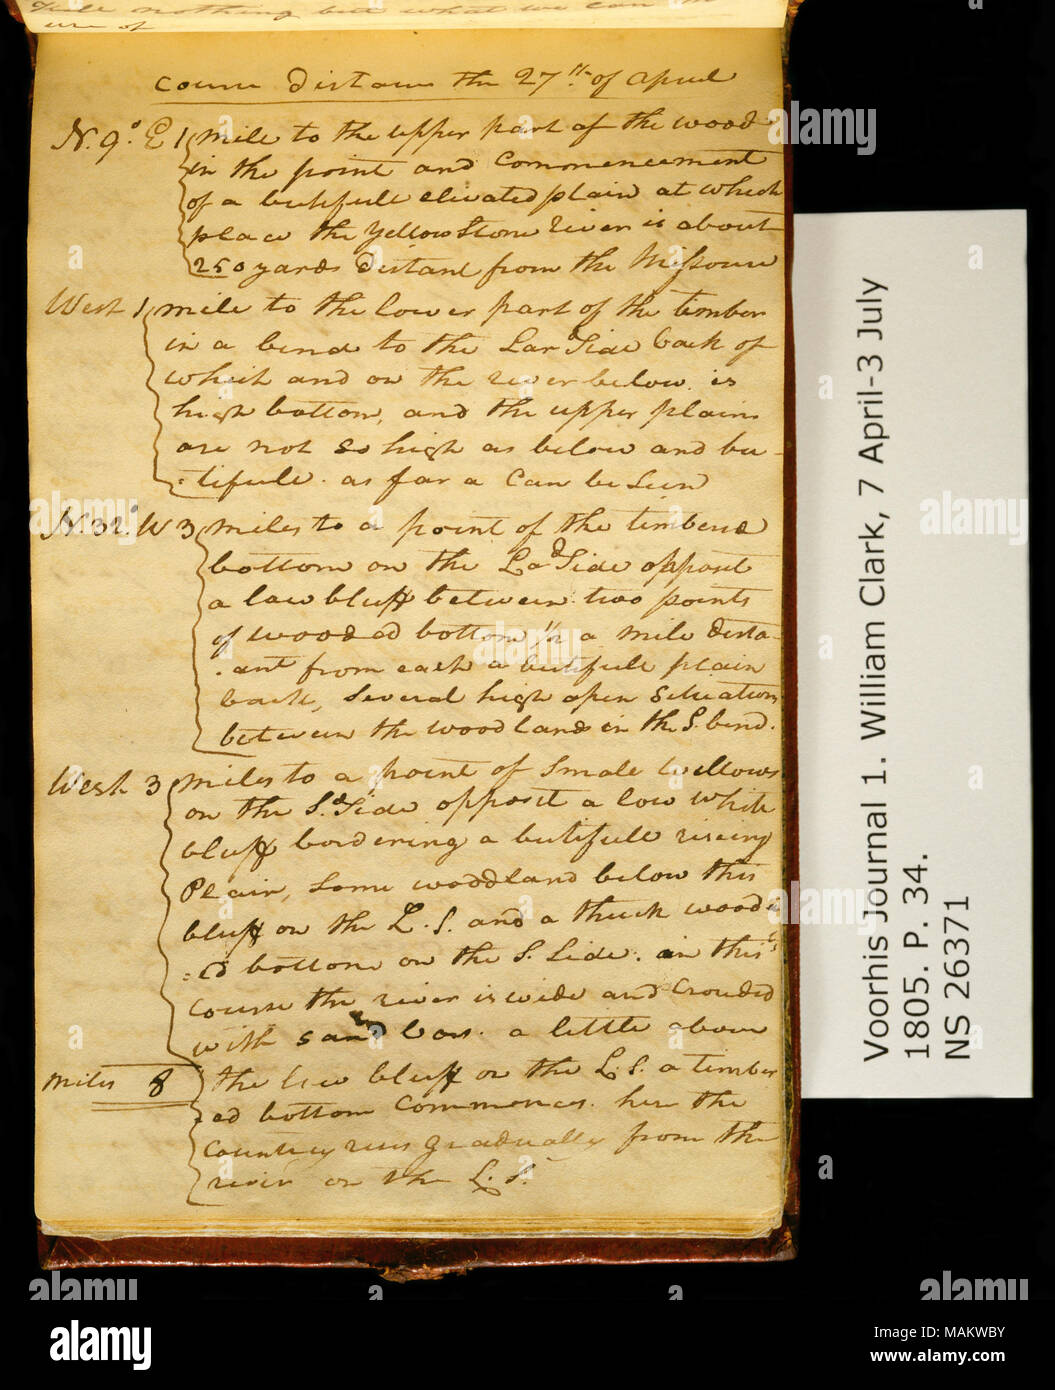 Take nothing but what we can m
use of
Course Distance the 27th of April
N. 9° E 1 mile to the upper part of the wood
in the point and Commencement
of a butifull elivated plain at which
place the Yellow Stone river is about
250 yards distant from the Missouri
West 1 mile to the lower part of the timber
in a bend to the Lard Side back of
which and on the river below is
high bottom, and the upper plains
are not so high as below and bu-
=tifull. as far a Can be Seen
N. 32° W 3 miles to a point of the timbered
bottom on the Lad Side opposit
a low bluff between two points
of wooded bottom 1/2 a mile dista-
ant from each a butifull plain
back, Several high open Situations
between the woodlands in the S. bend.
West 3 miles to a point of Small Willows
on the Sd Side opposit a low white
bluff bordering a butifull riseing
Plain, Some woodland below this
bluff on the L. S. and a thick wood
=ed bottom on the S. Side. in this
Course the river is wide and Crouded
with Sand bars. a little above
miles 8 the low bluff on the L. S. a timber
ed bottom Commences. here the
Country rises gradually from the
river on the L. S.
Voorhis Journal 1. William Clark, 7 April-3 July
1805. P. 34.
NS 26371
alamy
alamy
Image ID: MAKWBY
www.alamy.com